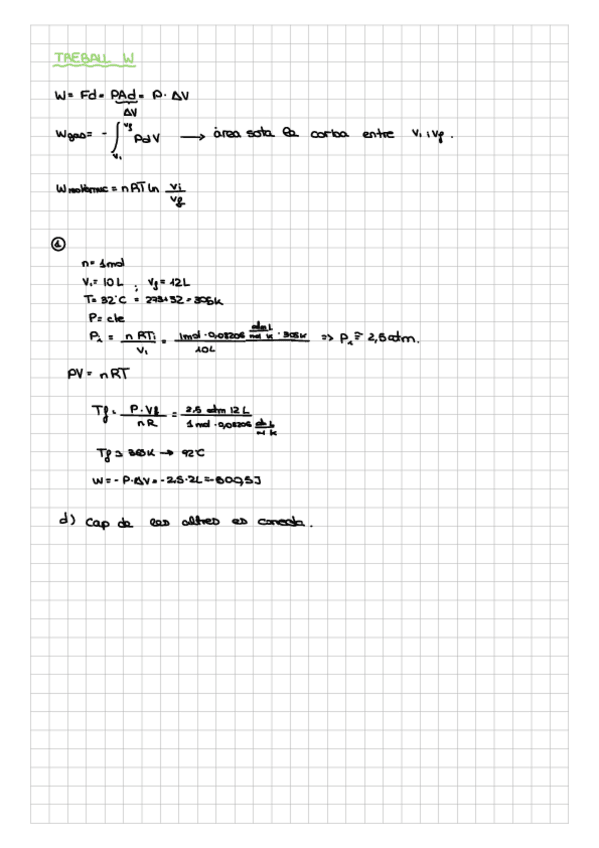 TREBALL W
W= Fd= PAd= P· ΔV
ΔV
Wgas= - ∫ PdV → àrea sota la corba entre Vi i Vf.
Vf
Vi
Wisotèrmic = nRT ln Vi/Vf
①
n= 1mol
Vi= 10L ; Vf= 12L
T= 32°C = 273+32 = 305K
P= cte
P₁ = nRTi/Vi = 1mol · 0,08206 atm L/mol K · 305K / 10L => P₁ ≅ 2,5atm.
PV = nRT
Tf = P·Vf/nR = 2,5 atm 12L / 1mol · 0,08206 atm L/mol K
W= -P·ΔV= -2,5·2L=
d) Cap de les altres es correcta.